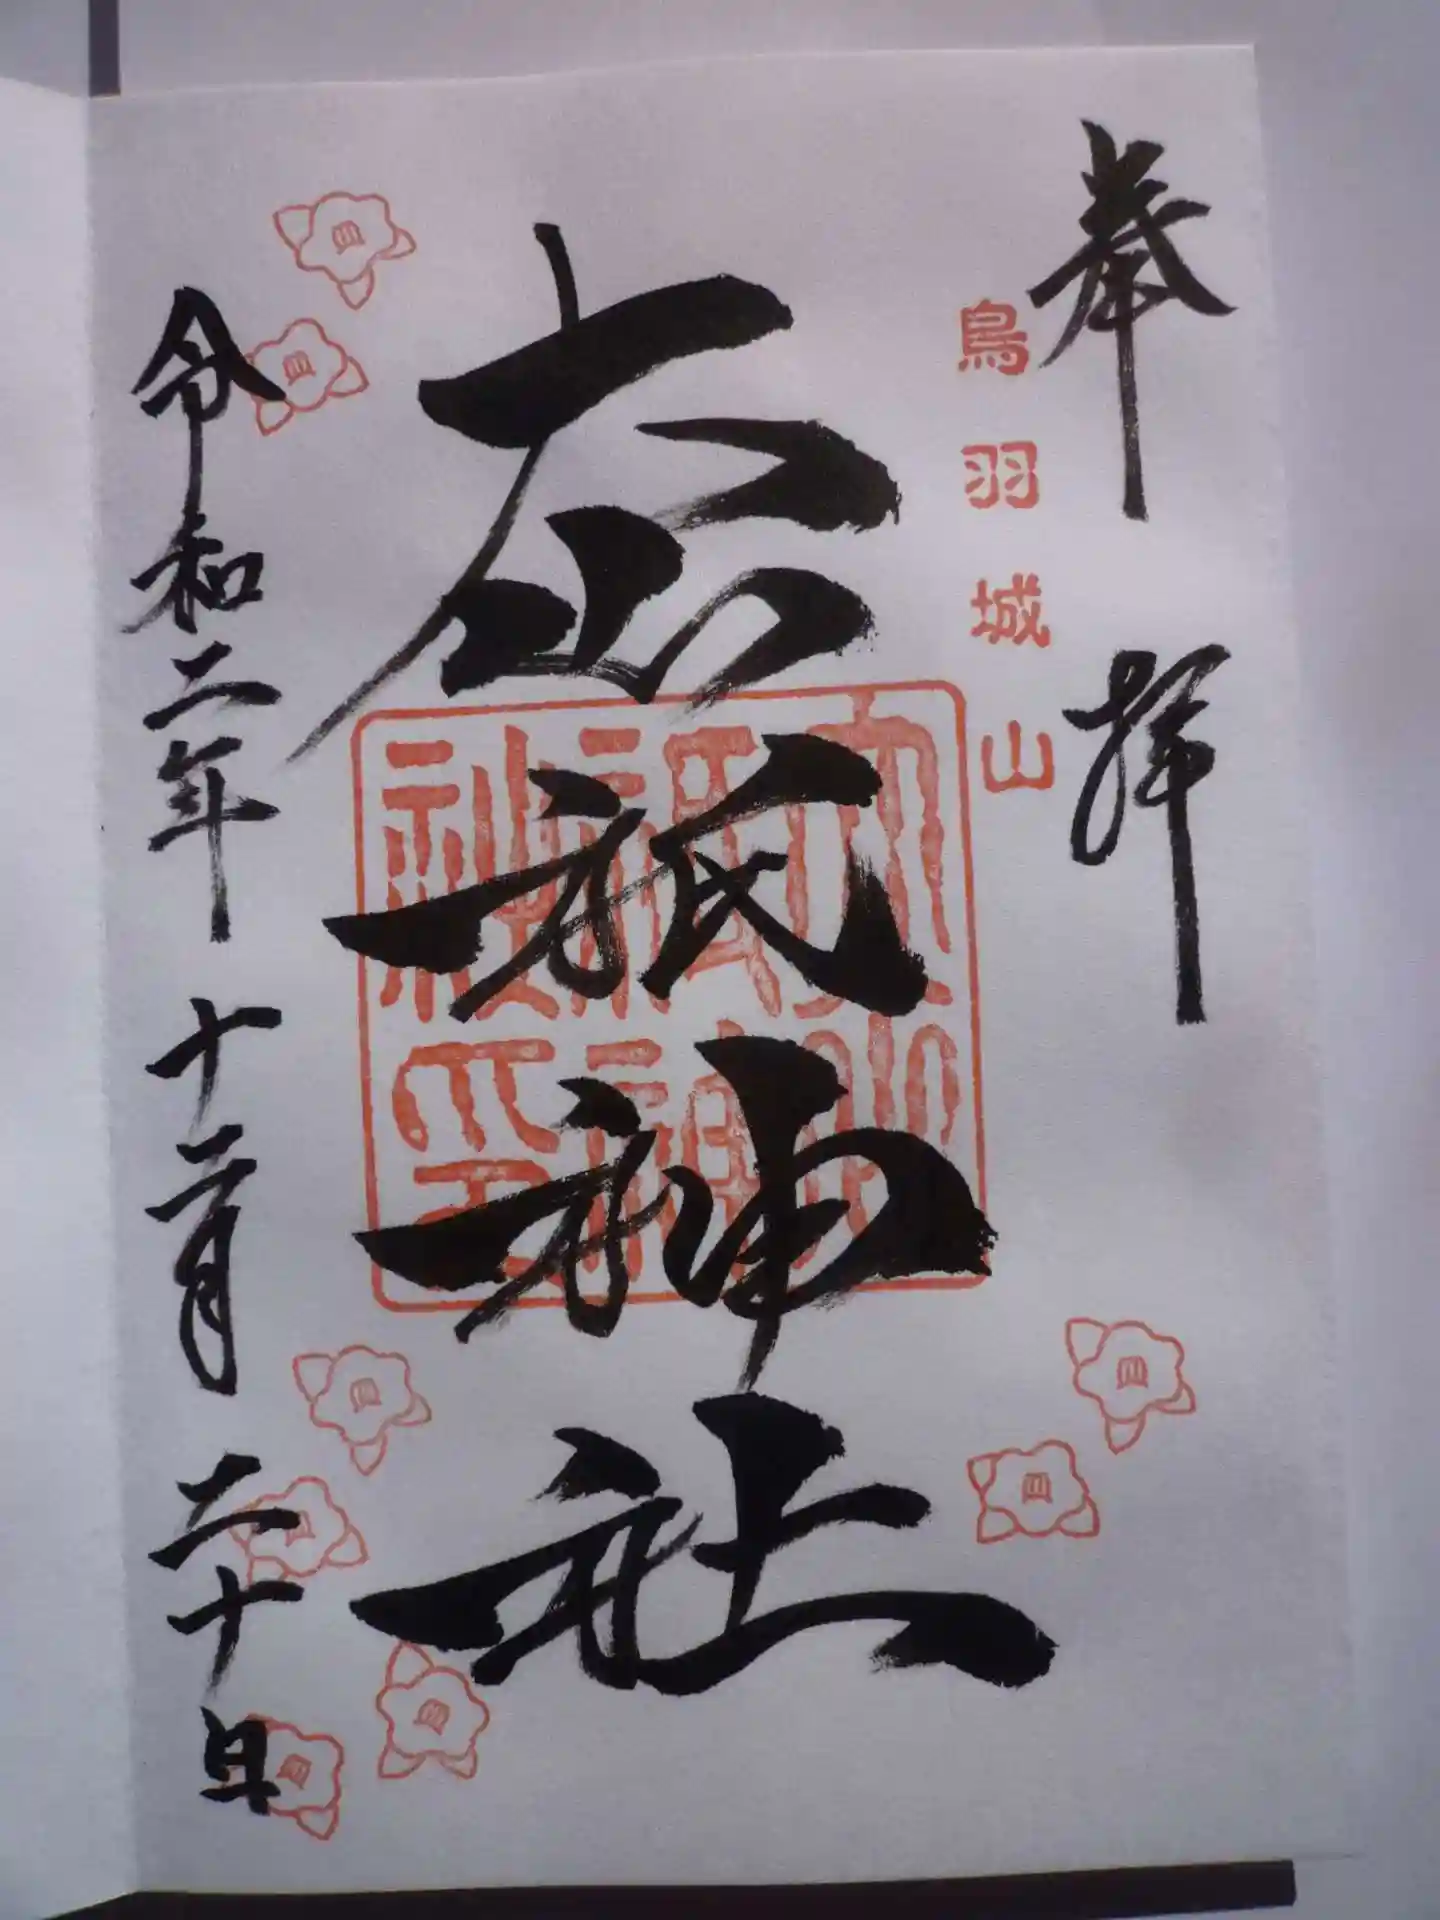 奉拝
鳥羽城山
大山祇神社
大山祇神社印
令和二年 十二月 二十日